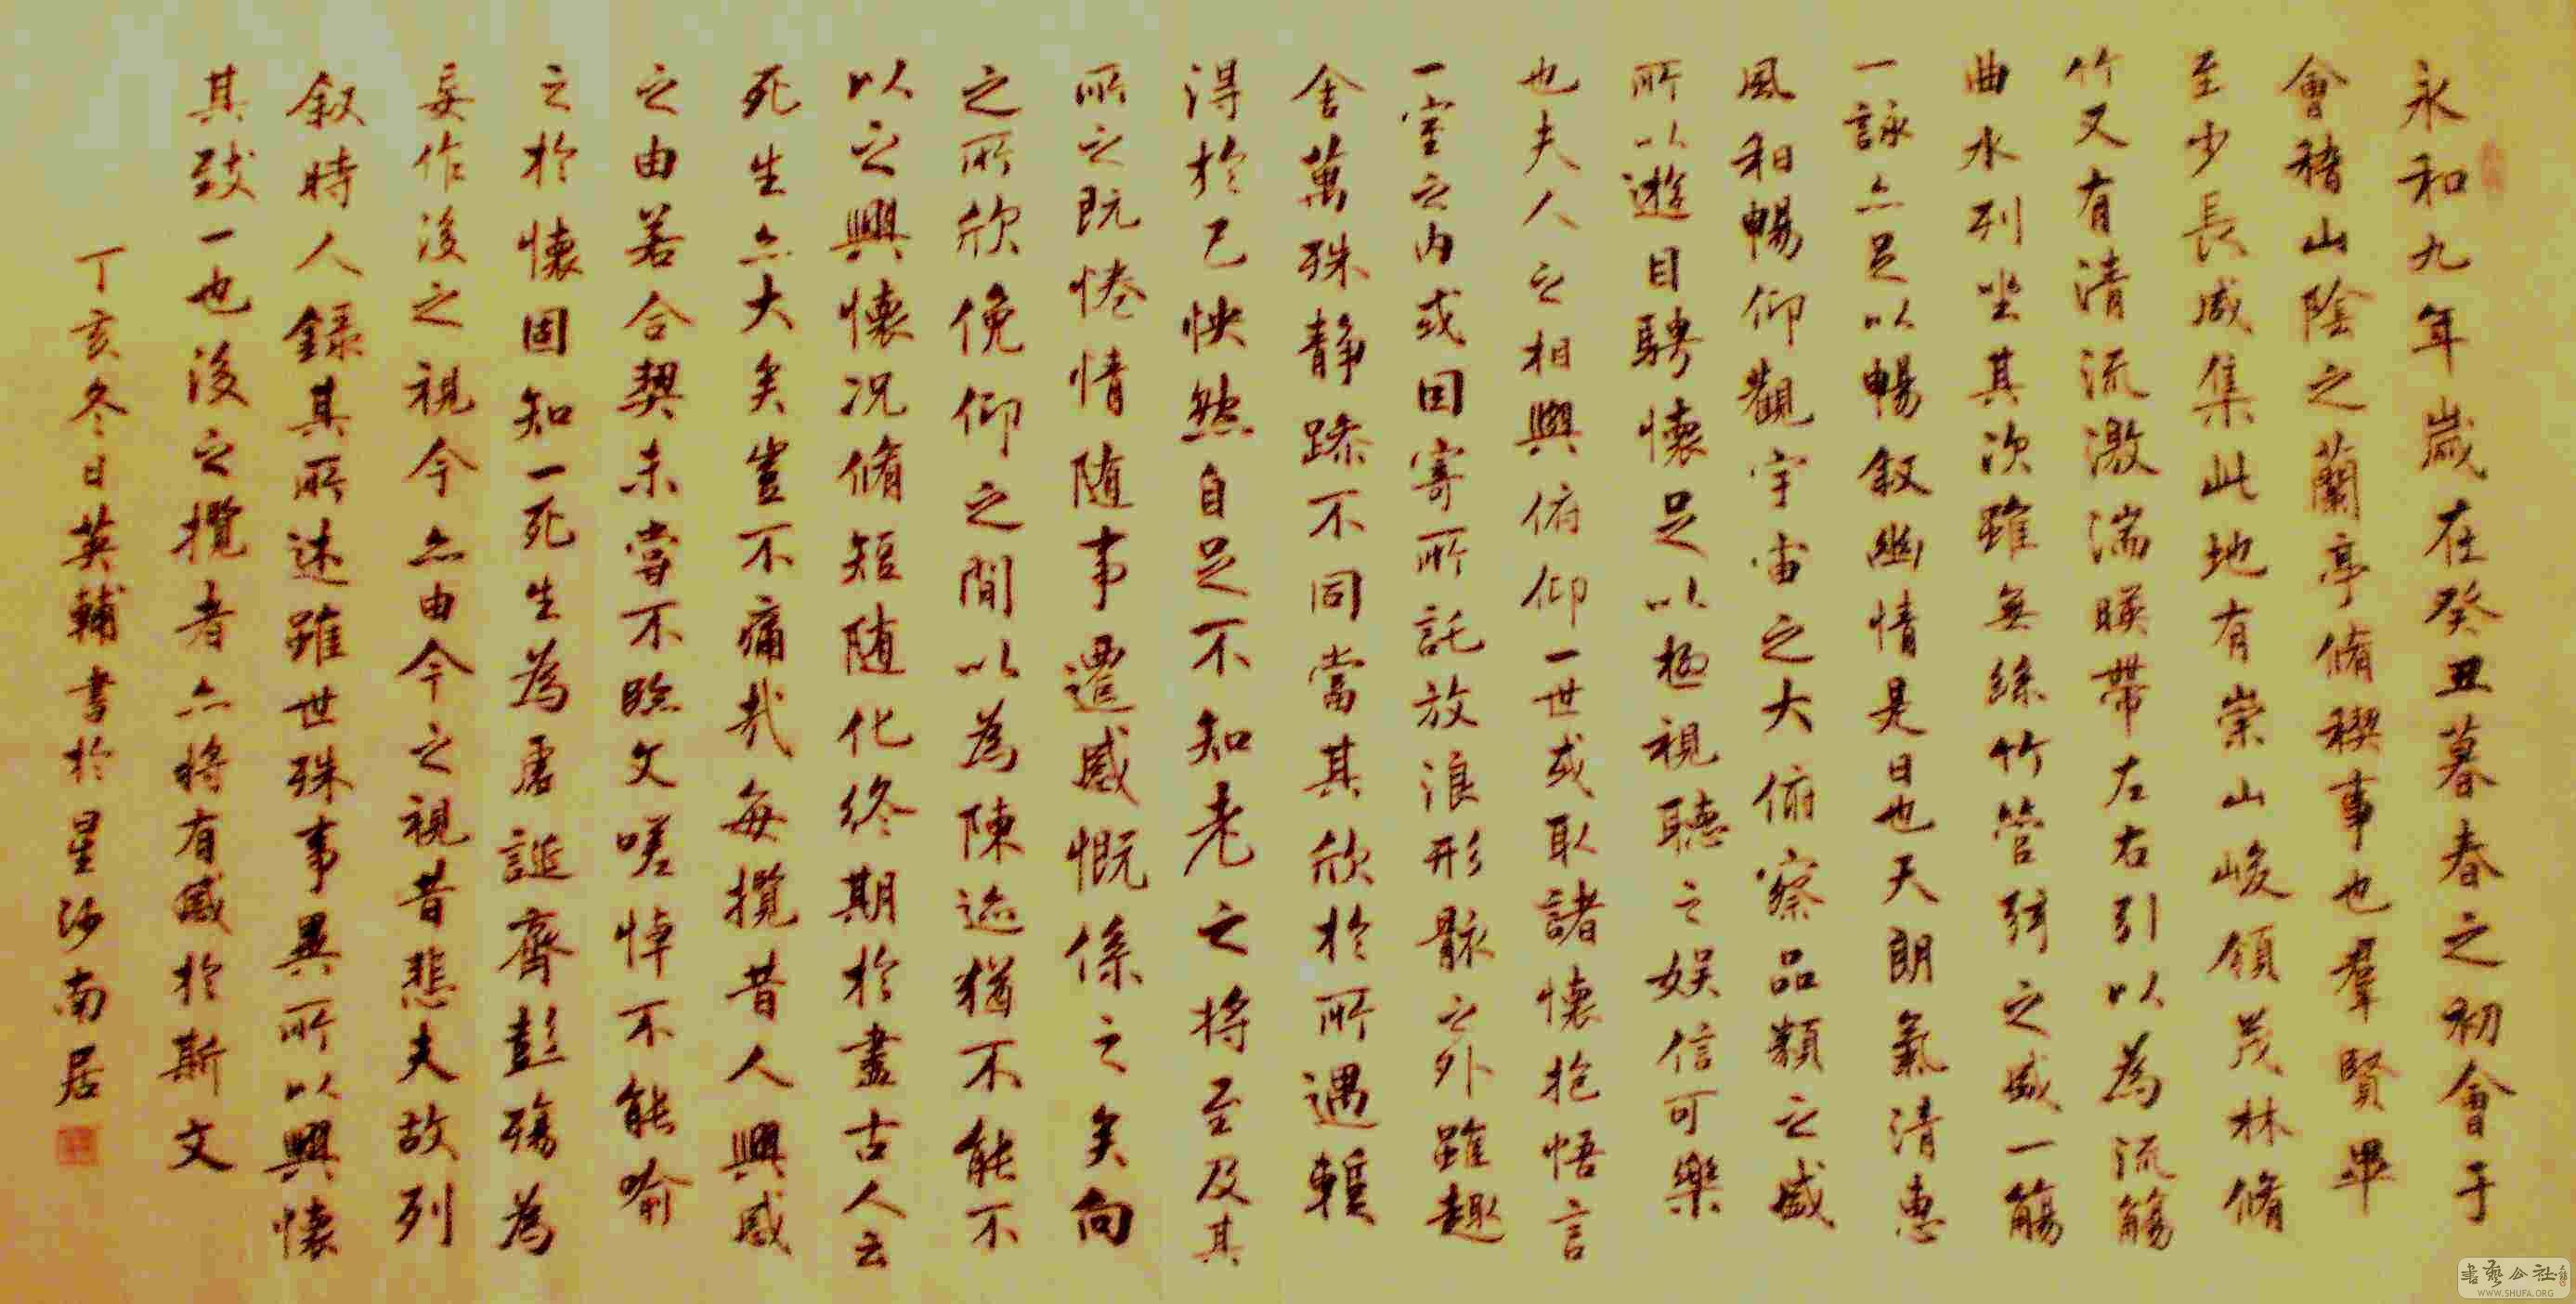 永和九年歲在癸丑暮春之初會于
會稽山陰之蘭亭脩禊事也羣賢畢
至少長咸集此地有崇山峻領茂林脩
竹又有清流激湍暎帶左右引以為流觴
曲水列坐其次雖無絲竹管弦之盛一觴
一詠亦足以暢叙幽情是日也天朗氣清惠
風和暢仰觀宇宙之大俯察品類之盛
所以遊目騁懷足以極視聽之娛信可樂
也夫人之相與俯仰一世或取諸懷抱悟言
一室之內或因寄所託放浪形骸之外雖趣
舍萬殊静躁不同當其欣於所遇輒
得於己怏然自足不知老之将至及其
所之既惓情随事遷感慨係之矣向
之所欣俛仰之間以為陳迹猶不能不
以之興懷况脩短随化終期於盡古人云
死生亦大矣豈不痛哉每攬昔人興感
之由若合契未嘗不臨文嗟悼不能喻
之於懷固知一死生為虛誕齊彭殤為
妄作後之視今亦由今之視昔悲夫故列
叙時人録其所述雖世殊事異所以興懷
其致一也後之攬者亦将有感於斯文
丁亥冬日英輔書於星沙南居
書藝公社
WWW.SHUFA.ORG